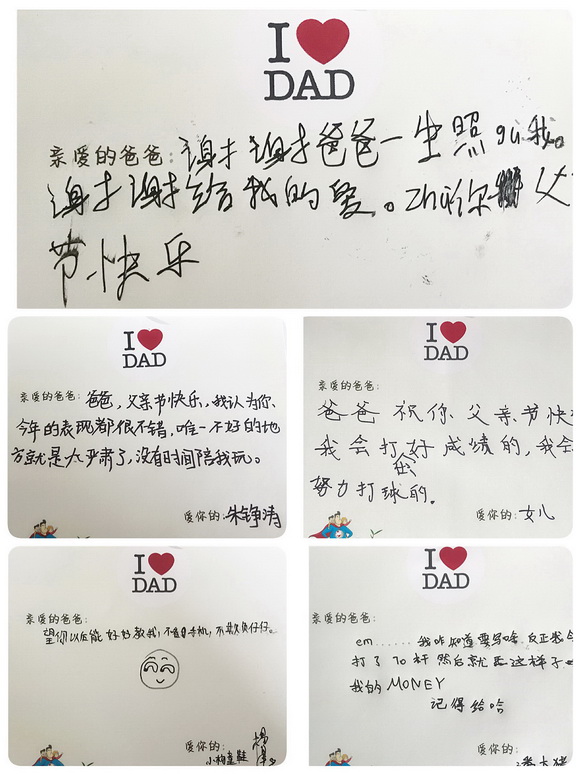 I ❤ DAD
亲爱的爸爸: 谢谢爸爸一生照gu我。
谢谢给我的爱。zhu你 父
节快乐
I ❤ DAD
亲爱的爸爸: 爸爸,父亲节快乐,我认为你
今年的表现都很不错,唯一不好的地
方就是太严肃了,没有时间陪我玩。
爱你的: 朱铮涛
I ❤ DAD
亲爱的爸爸:
爸爸 祝你 父亲节快
我会打好成绩的,我会
努力打球的。
爱你的: 女儿
I ❤ DAD
亲爱的爸爸:
望你以后能好好教我,不看手机,不欺负仔仔。
爱你的:
I ❤ DAD
亲爱的爸爸:
em...... 我咋知道要写啥 反正我今
打了70杆 然后就是这样子
我的MONEY
记得给哈
爱你的: